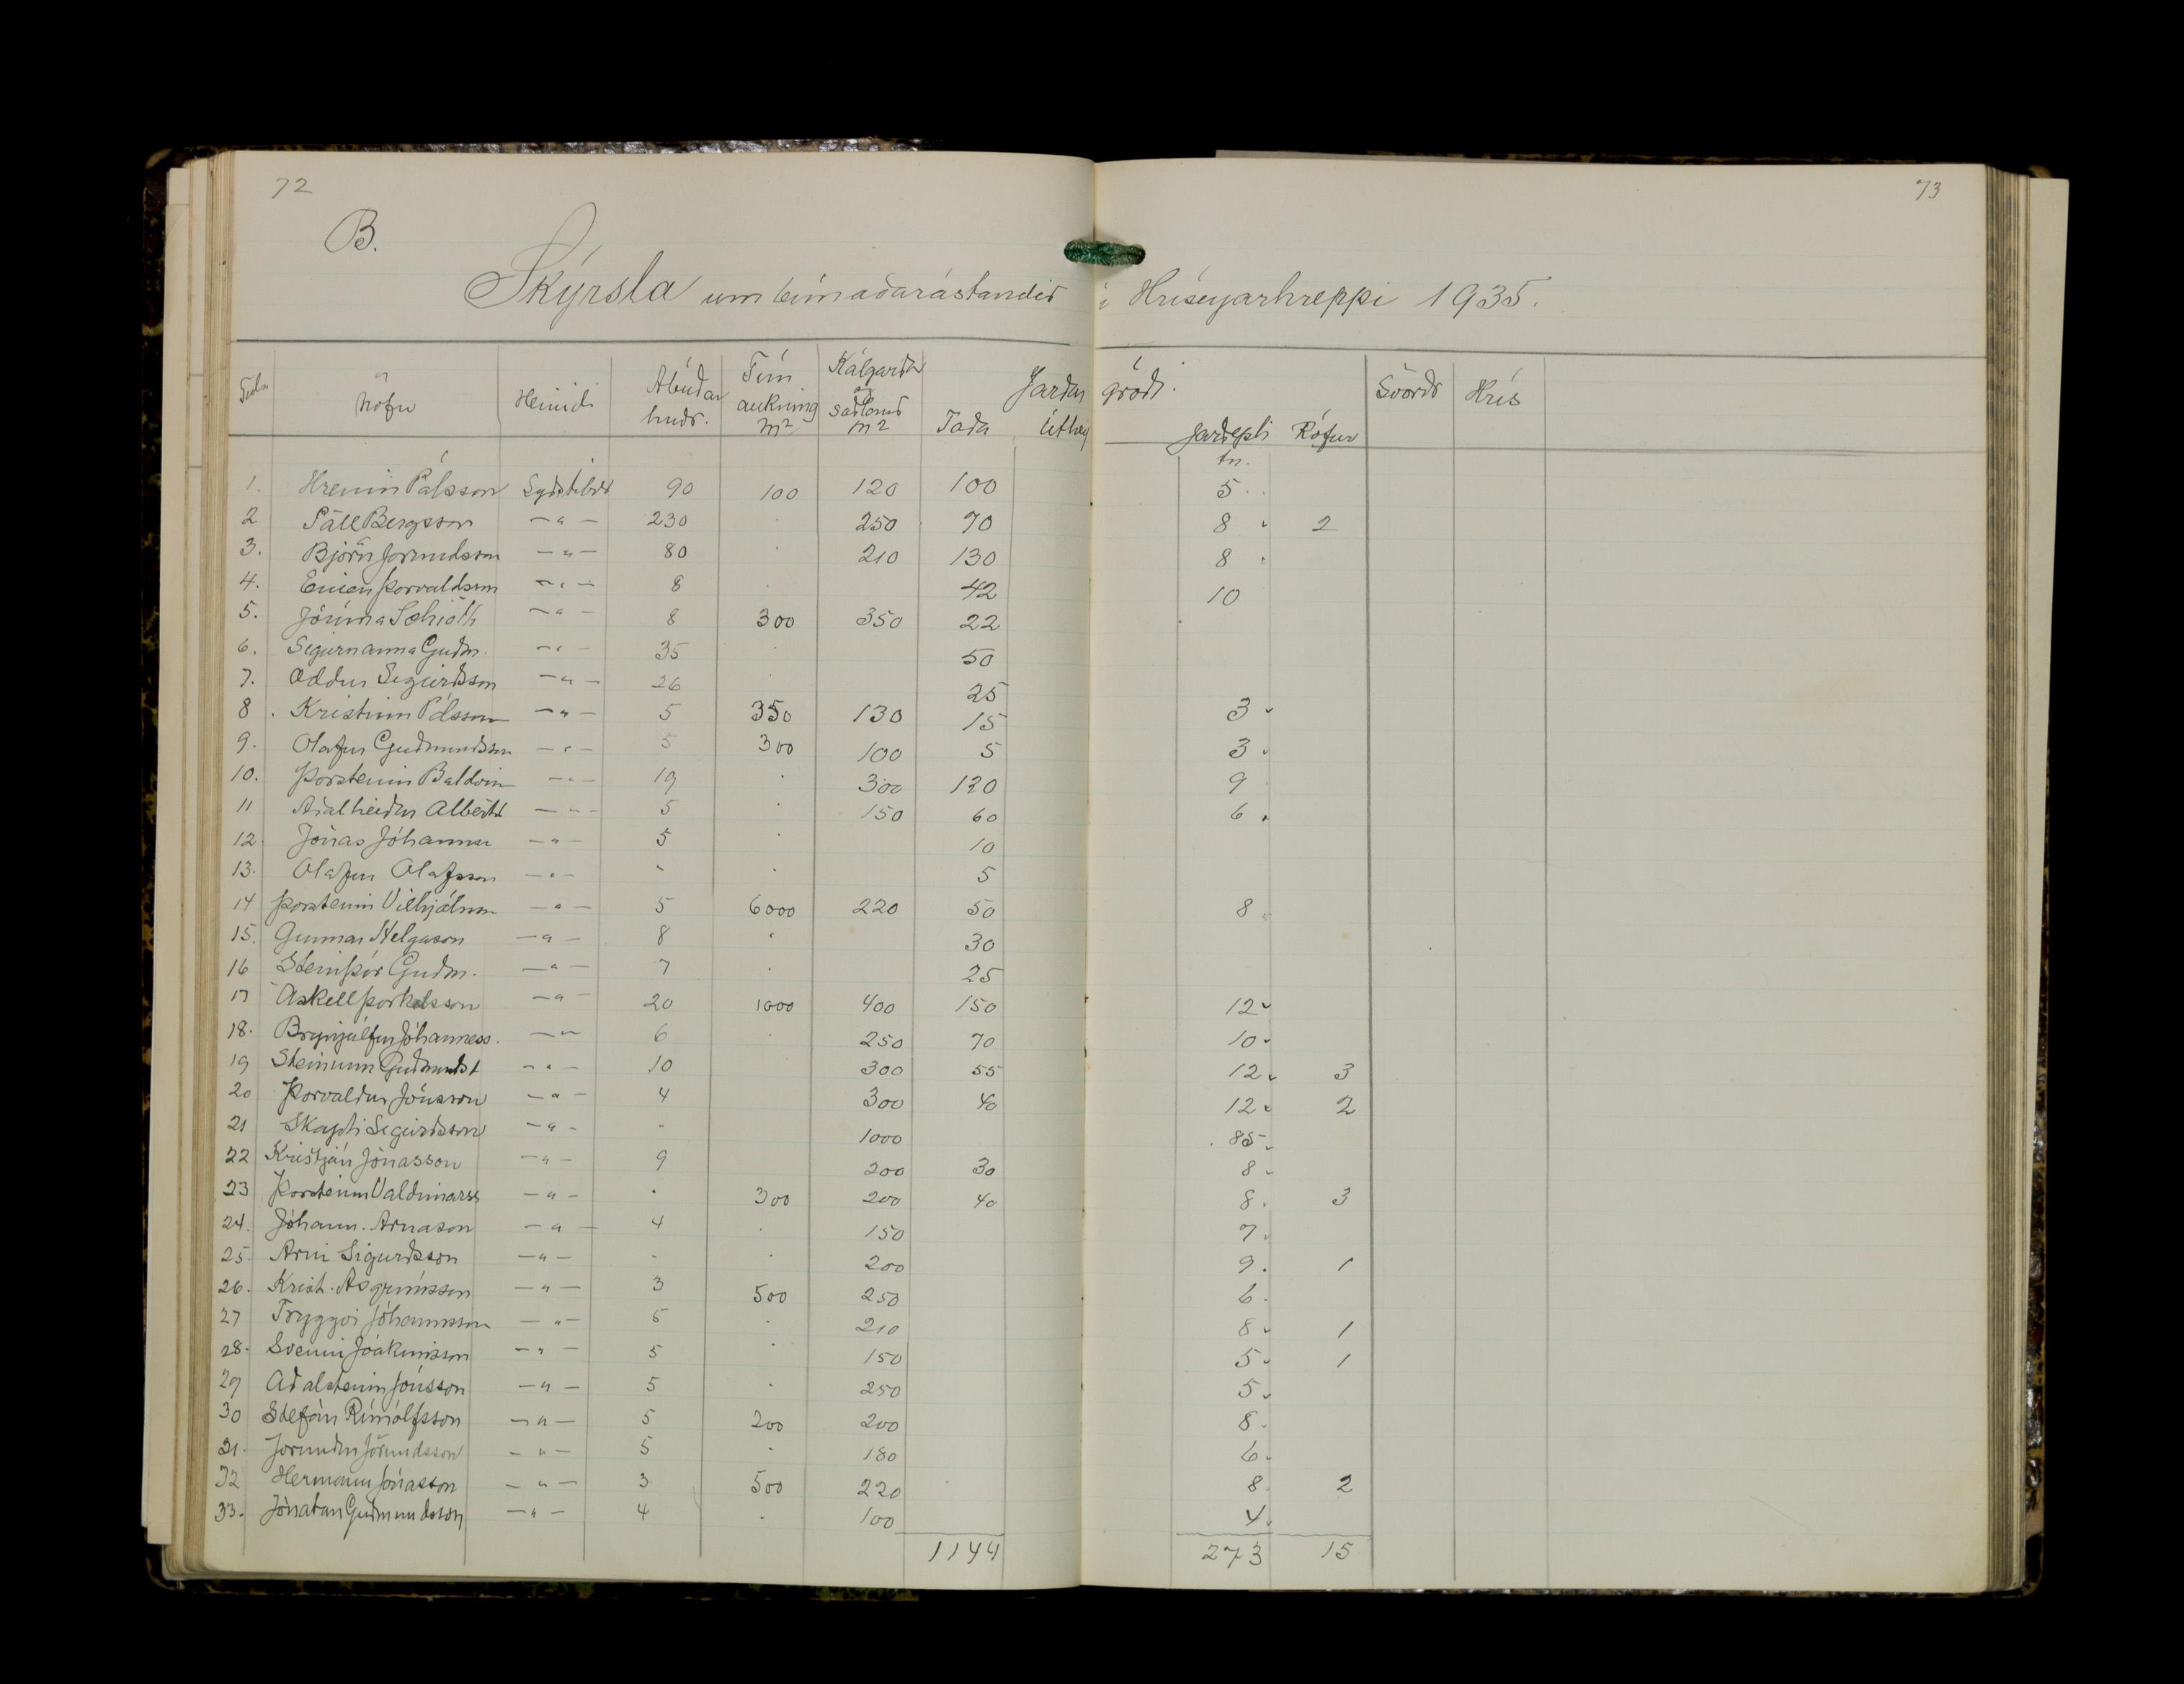 72
73
B.
Skýrsla um búnaðarástandið í Hríseyarhreppi 1935.
Tala Nöfn Heimili Ábúðar hndr. Tún aukning m2 Kálgarðar og sáðland m2 Jarðar gróði. Taða Úthey Jarðepli Rófur Svörðr Hrís
tn.
1. Hreinn Pálsson Sydstibær 90 100 120 100 5
2 Páll Bergsson — " — 230 250 70 8 2
3. Björn Jörundsson — " — 80 210 130 8
4. Einar Þorvaldsson — " — 8 42 10
5. Jónína Schiöth — " — 8 300 350 22
6. Sigurnanna Guðm. — " — 35 50
7. Oddur Sigurðsson — " — 26 25
8. Kristinn Pálsson — " — 5 350 130 15 3
9. Olafur Guðmundsson — " — 5 300 100 5 3
10. Þorsteinn Baldvin — " — 19 300 120 9
11 Aðalheiður Albertsd — " — 5 150 60 6
12 Jónas Jóhannss — " — 5 10
13. Olafur Olafsson — " — - 5
14 Þorsteinn Vilhjálmss — " — 5 6000 220 50 8
15. Gunnar Helgason — " — 8 30
16 Steinþór Guðm. — " — 7 25
17 Áskell Þorkelsson — " — 20 1000 400 150 12
18. Brynjúlfur Jóhanness. — " — 6 250 70 10
19 Steinunn Guðmundsd — " — 10 300 55 12 3
20 Þorvaldur Jónsson — " — 4 300 40 12 2
21 Skapti Sigurðsson — " — - 1000 85
22 Kristján Jónasson — " — 9 200 30 8
23 Þorsteinn Valdimarss — " — 300 200 40 8 3
24. Jóhann. Arnason — " — 4 150 7
25. Arni Sigurðsson — " — - 200 9 1
26. Krist. Asgrímsson — " — 3 500 250 6
27 Tryggvi Jóhannsson — " — 5 210 8 1
28. Sveinn Jóakimsson — " — 5 150 5 1
29 Aðalsteinn Jónsson — " — 5 250 5
30 Stefán Rúnólfsson — " — 5 200 200 8
31. Jörundur Jörundsson — " — 5 180 6
32 Hermann Jónasson — " — 3 500 220 8 2
33. Jónatan Guðmundsson — " — 4 100 4
1144 273 15